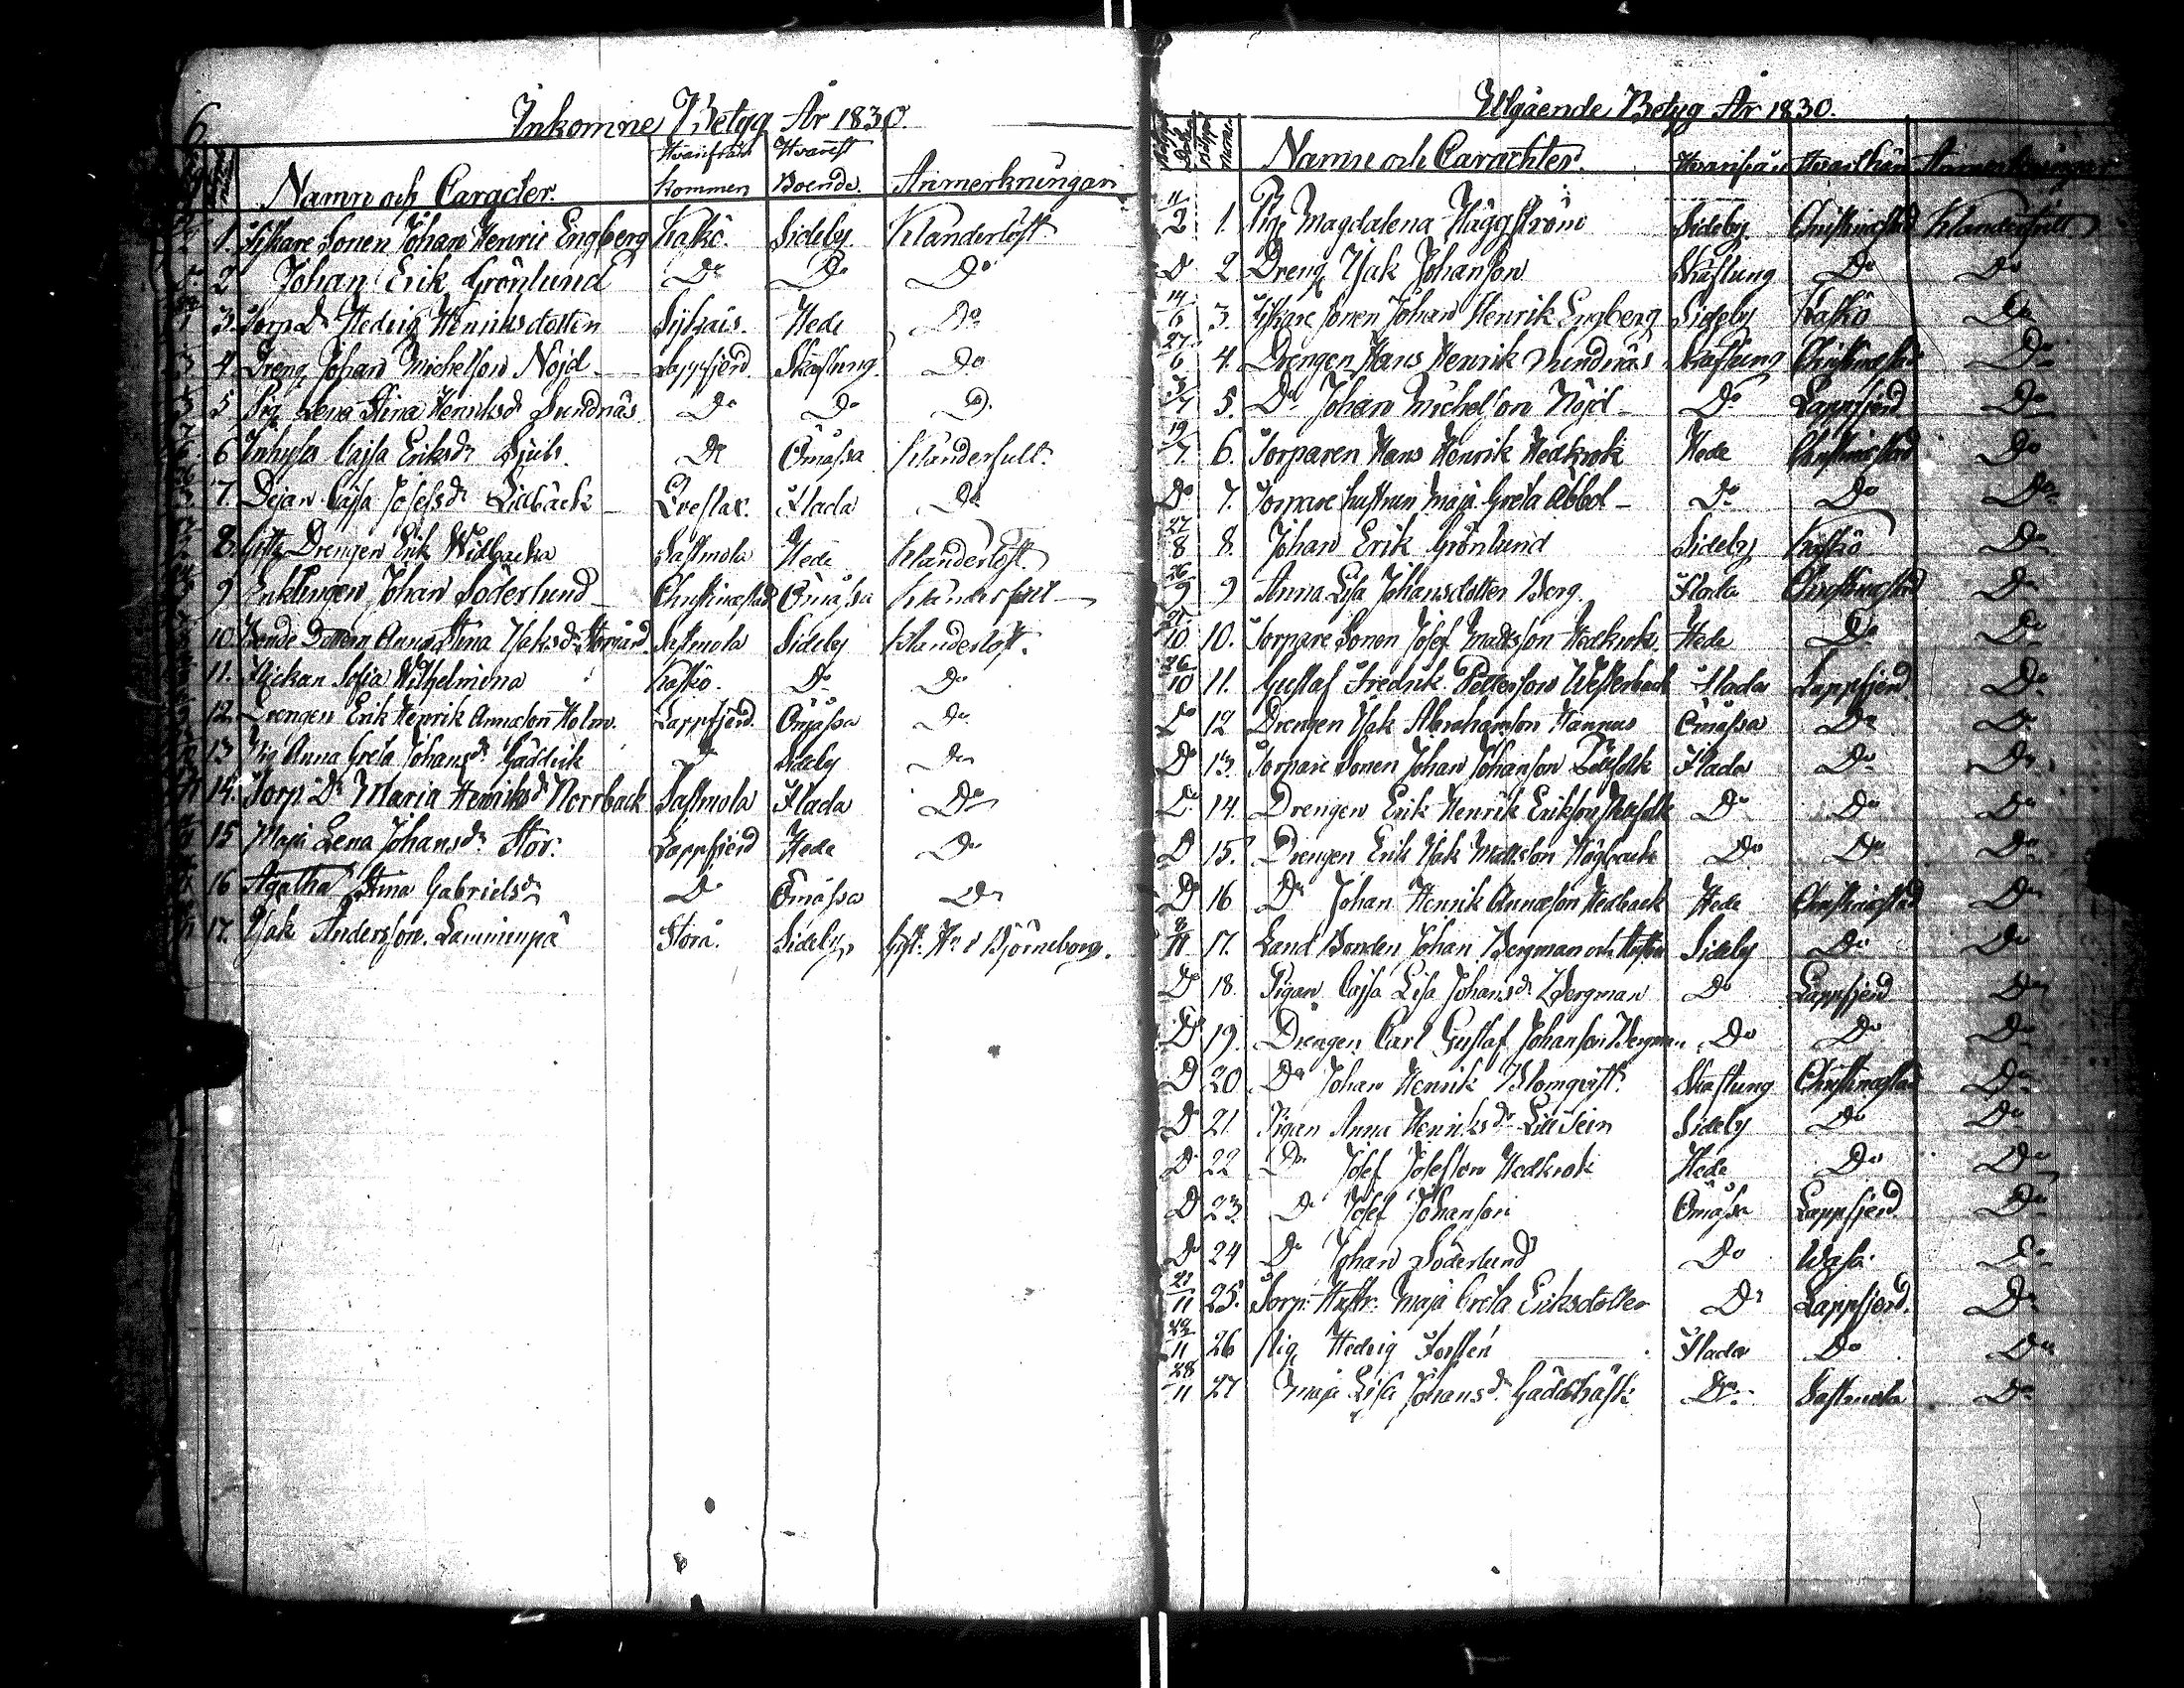 6.
Inkomne Betyg År 1830.
Namn och Caracter. Hvarifrån Kommen Hvarest Boende. Anmerkningar
1. Fiskare Sonen Johan Henric Engberg Kaskö. Sideby Klanderlöst
2 Johan Erik Grönlund Do Do Do
3. Torp Dr Hedvig Henriksdotter Hede Do
4 Dreng Johan Michelson Nöjd Lappfjerd Skaftung Do
5 Pig. Lena Stina Henriksdr Sundnäs Do Do Do
6 Inhyses Cajsa Eriksdr Do Ömåssa Klanderfull
7. Pejan Cajsa Josefsdr Lillback Flada Do
8. Gifta Drengen Erik Widbacka Sastmola Hede Klanderlöst.
9 Enklingen Johan Söderlund Christinæstad Ömåssa Klanderfritt
10. Bonde Dottern Anna Stina Isaksdr Storgård Sastmola Sideby Klanderlöst.
11. Flickan Sofia Wilhelmina Kaskö. Do Do
12. Drengen Erik Henrik Annæson Holm. Lappfjerd. Ömåssa Do
13 Pig Anna Greta Johansdr Gäddvik Do Sideby Do
14. Torp Dr Maria Henriksdr Norrback Sastmola Flada Do
15 Maja Lena Johansdr Stor. Lappfjerd Hede Do
16 Agatha Stina Gabrielsdr Do Ömåssa Do
17. Isak Andersson Lamminpä Storå. Sideby Björneborg.
Utgående Betyg År 1830.
Namn och Carachter. Hvarifrån Hvarthän Anmerkningar
11/2 1. Pig. Magdalena Häggström Sideby Christinæstad Klanderfritt
Do 2. Dreng Isak Johanson Skaftung Do Do
14/6 3. Fiskare sonen Johan Henrik Engberg Sideby Kaskö Do
27/6 4. Drengen Hans Henrik Sundnäs Skaftung Christinæstad Do
5. Do Johan Michelson Nöjd Do Lappfjerd Do
19/7 6. Torparen Hans Henrik Hedkrok Hede Christinæstad Do
Do 7. Torpare hustrun Maja Greta Abbol Do Do Do
22/8 8. Johan Erik Grönlund Sideby Kaskö Do
26/9 9 Anna Lisa Johansdotter Berg. Flada Christinæstad Do
10. Torpare Sonen Josef Mattsson Hedkrok. Hede Do Do
26/10 11. Gustaf Fredrik Petterson Westerback Flada Lappfjerd Do
Do 12 Drengen Isak Abrahamson Hannus Ömåssa Do Do
Do 13. Torpare Sonen Johan Johanson Flada Do Do
Do 14. Drengen Erik Henrik Erikson Do Do Do
Do 15. Drengen Erik Isak Mattsson Högback Do Do Do
Do 16 Do Johan Henrik Annæson Hedback Hede Christinæstad Do
8/11 17. Land Bonden Johan Bergman och Hustru Sideby Do Do
Do 18. Pigan Cajsa Lisa Johansdr Bergman Do Lappfjerd Do
Do 19. Drengen Carl Gustaf Johanson Bergman Do Do Do
Do 20 Do Johan Henrik Blomqvist Skaftung Christinæstad Do
Do 21. Pigan Anna Henriksdr Sideby Do Do
Do 22 Do Josef Josefson Hedkrok Hede Do Do
Do 23. Do Josef Johanson Ömåssa Lappfjerd Do
Do 24 Do Johan Söderlund Do Wasa Do
22/11 25. Torp. Hustr. Maja Greta Eriksdotter Do Lappfjerd. Do
26 Pig. Hedvig Forstén Flada Do Do
28/11 27 Maja Lisa Johansdr Do Sastmola Do